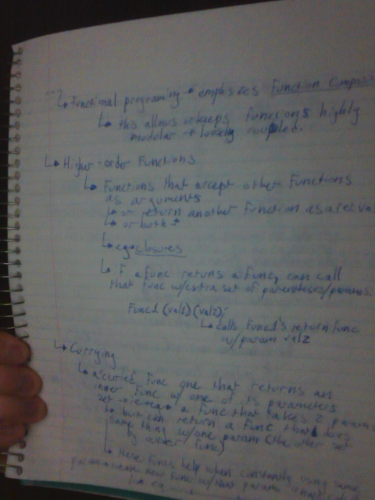 ↳ Functional programing → emphasizes Function Composit
↳ this allows keeps functions highly
modular → loosely coupled.
↳ Higher-order Functions
↳ Functions that accept other Functions
as arguments
↳ or return another Function as a
↳ or both
↳ eg closures
↳ If a func returns a func, can call
that func w/extra set of parentheses/params.
Func1 (val1)(val2);
↳ calls Func1's return func
w/ param val2
↳ Currying
↳ a curried func one that returns an
inner func w/ one of its parameters
set → a func that takes 2 params
↳ but can return a func that does
same thing w/one param (the other set
by outer func)
↳ these funcs help when constantly using same
new func w/ that param